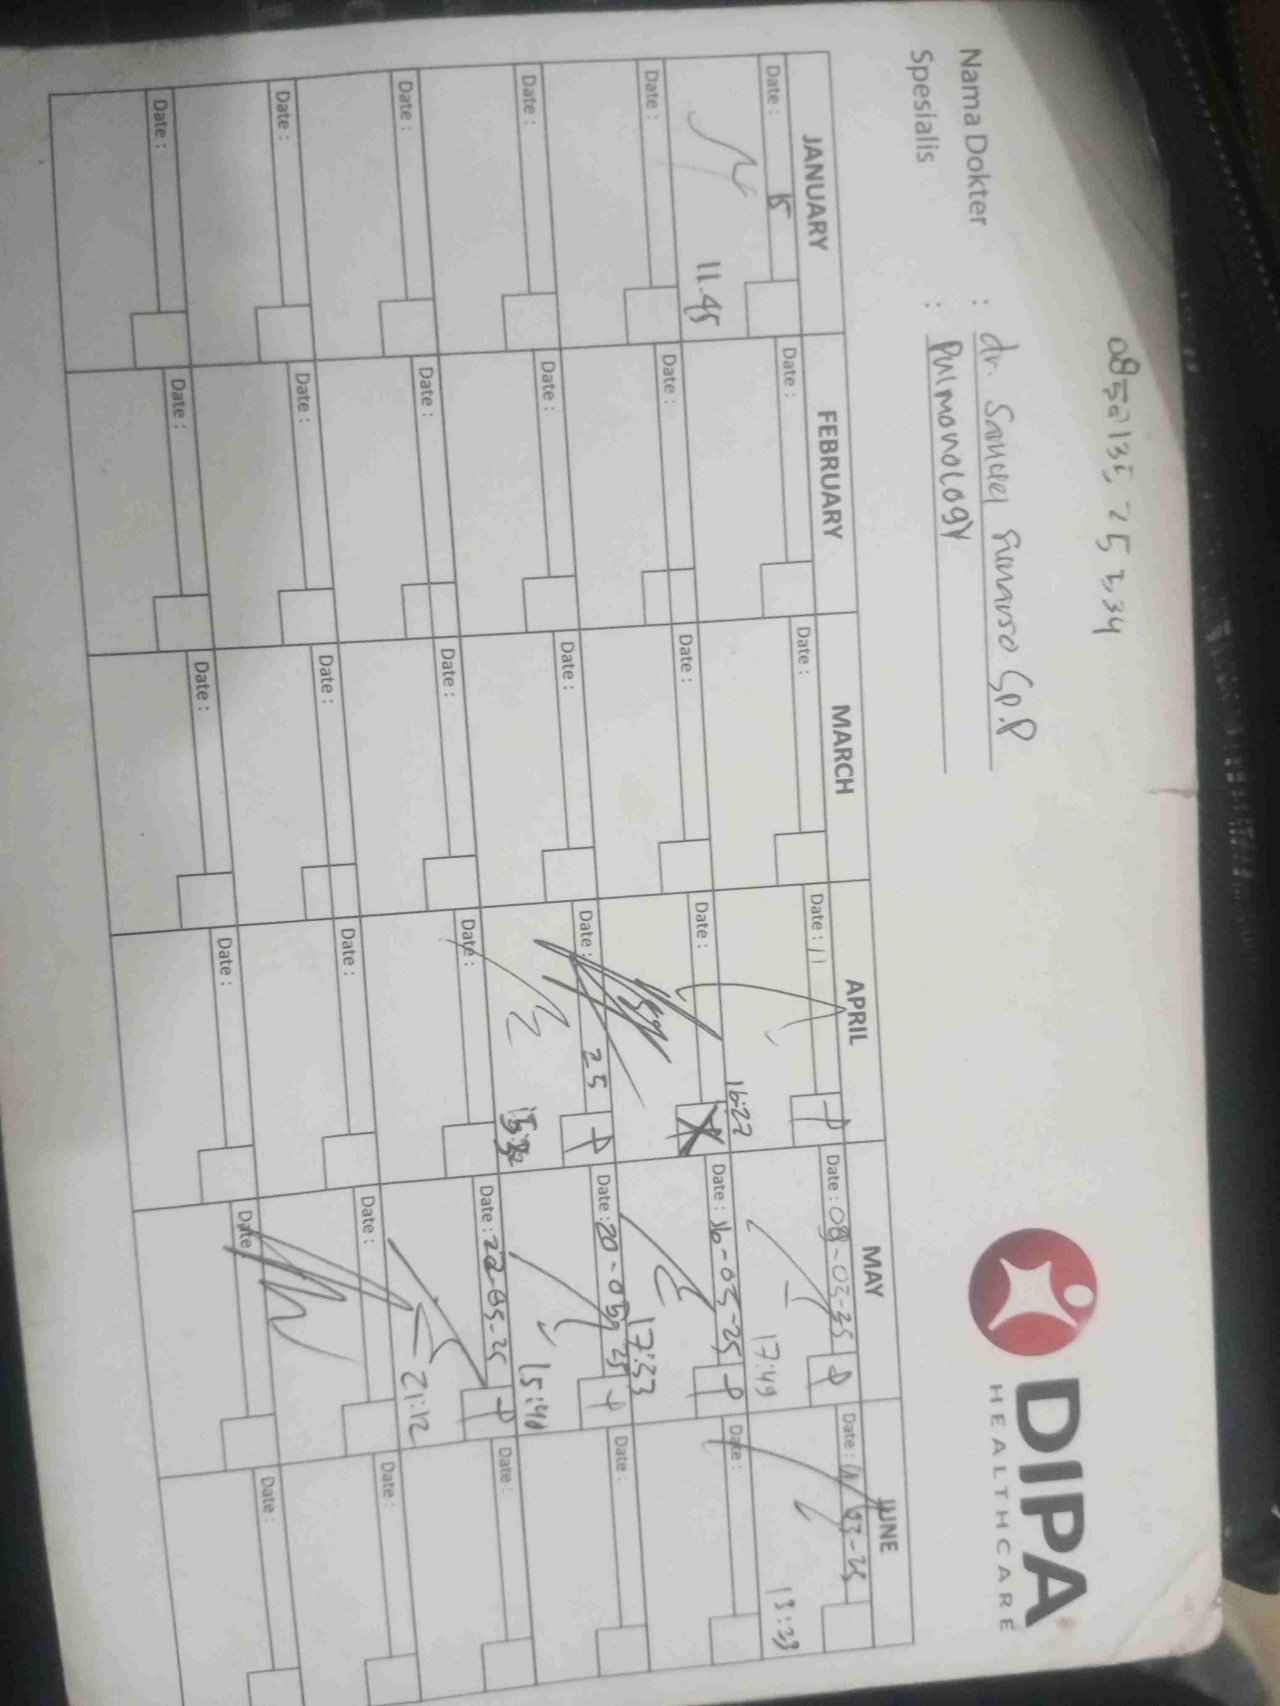 085 2 135 25 234
DIPA
HEALTHCARE
Nama Dokter : dr. Samuel Sunarso Sp.P
Spesialis : Pulmonology
JANUARY FEBRUARY MARCH APRIL MAY JUNE
Date : 15 Date : Date : Date : 11 Date : 08-05-25 Date : 03-25
11.45 16:27 17:49 13:33
Date : Date : Date : Date : Date : 16-05-25 Date :
17:33
Date : Date : Date : Date : 25 Date : 20-05-25 Date :
15:40
Date : Date : Date : Date : Date : 22-05-25 Date :
21:12
Date : Date : Date : Date : Date : Date :
Date : Date : Date : Date : Date Date :